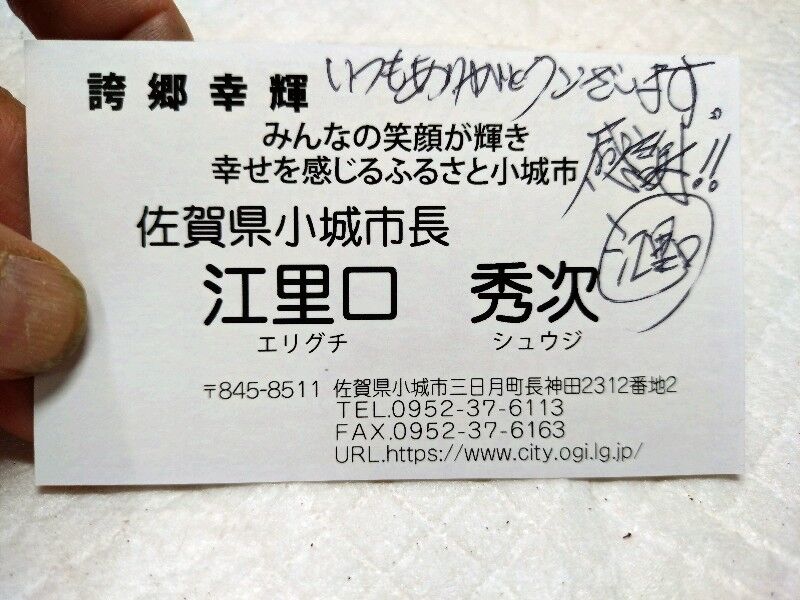 誇郷幸輝
いつもありがとうございます。
みんなの笑顔が輝き
幸せを感じるふるさと小城市
感謝!!
佐賀県小城市長
江里口
江里口 秀次
エリグチ シュウジ
〒845-8511 佐賀県小城市三日月町長神田2312番地2
TEL.0952-37-6113
FAX.0952-37-6163
URL.https://www.city.ogi.lg.jp/